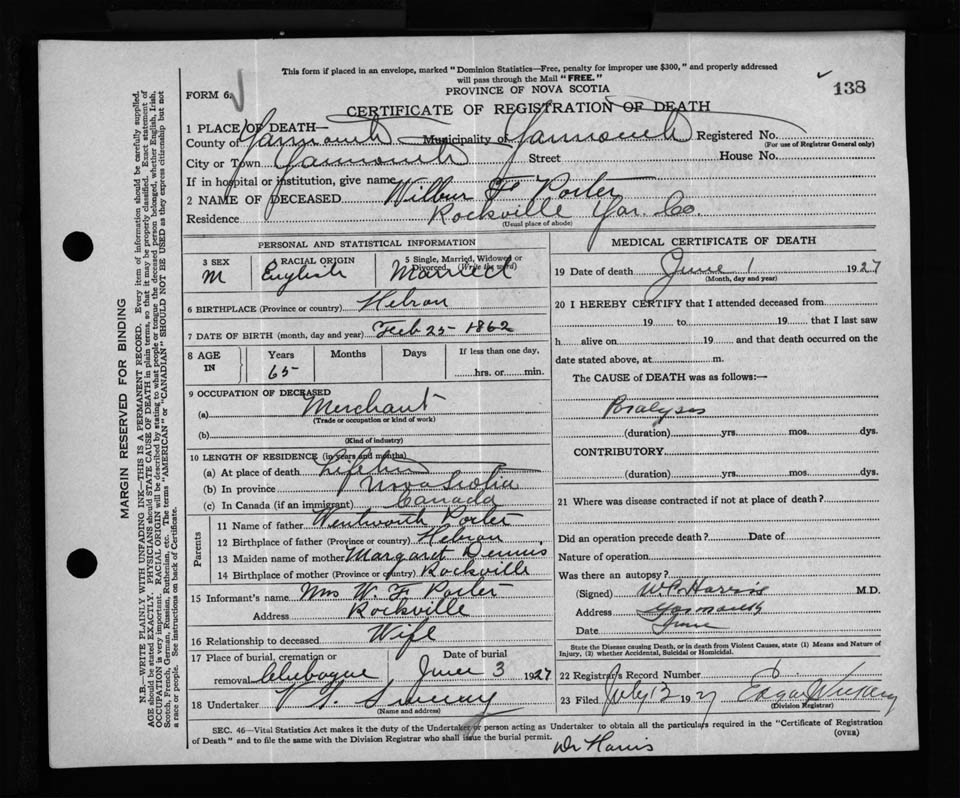 This form if placed in an envelope, marked "Dominion Statistics—Free, penalty for improper use $300," and properly addressed
will pass through the Mail "FREE."
138
PROVINCE OF NOVA SCOTIA
FORM 6.
CERTIFICATE OF REGISTRATION OF DEATH
1 PLACE OF DEATH—
County of Yarmouth Municipality of Yarmouth Registered No.
(For use of Registrar General only)
City or Town Yarmouth Street House No.
If in hospital or institution, give name
2 NAME OF DECEASED Wilbur F Porter
Residence Rockville Yar. Co.
(Usual place of abode)
PERSONAL AND STATISTICAL INFORMATION
3 SEX RACIAL ORIGIN 5 Single, Married, Widowed or Divorced (Write the word)
M English Married
6 BIRTHPLACE (Province or country) Hebron
7 DATE OF BIRTH (month, day and year) Feb 25 1862
8 AGE IN Years Months Days If less than one day,
65 hrs. or min.
9 OCCUPATION OF DECEASED
(a) Merchant
(Trade or occupation or kind of work)
(b)
(Kind of industry)
10 LENGTH OF RESIDENCE (in years and months)
(a) At place of death Lifetime
(b) In province Nova Scotia
(c) In Canada (if an immigrant) Canada
Parents
11 Name of father Wentworth Porter
12 Birthplace of father (Province or country) Hebron
13 Maiden name of mother Margaret Dennis
14 Birthplace of mother (Province or country) Rockville
15 Informant's name Mrs W. F Porter
Address Rockville
16 Relationship to deceased Wife
17 Place of burial, cremation or Date of burial
removal Chebogue June 3 1927
18 Undertaker V. G. Sweeny
(Name and address)
MEDICAL CERTIFICATE OF DEATH
19 Date of death June 1 1927
(Month, day and year)
20 I HEREBY CERTIFY that I attended deceased from
19 to 19 that I last saw
h alive on 19 and that death occurred on the
date stated above, at m.
The CAUSE of DEATH was as follows:—
Paralyses
(duration) yrs. mos. dys.
CONTRIBUTORY
(duration) yrs. mos. dys.
21 Where was disease contracted if not at place of death?
Did an operation precede death? Date of
Nature of operation
Was there an autopsy?
(Signed) W.C. Harris M.D.
Address Yarmouth
Date June
State the Disease causing Death, or in death from Violent Causes, state (1) Means and Nature of
Injury, (2) whether Accidental, Suicidal or Homicidal.
22 Registrar's Record Number 6
23 Filed July 13 1927 Edgar
(Division Registrar)
SEC. 46—Vital Statistics Act makes it the duty of the Undertaker or person acting as Undertaker to obtain all the particulars required in the "Certificate of Registration
of Death" and to file the same with the Division Registrar who shall issue the burial permit.
(OVER)
Dr Harris
MARGIN RESERVED FOR BINDING
N.B.—WRITE PLAINLY WITH UNFADING INK—THIS IS A PERMANENT RECORD. Every item of information should be carefully supplied.
AGE should be stated EXACTLY. PHYSICIANS should STATE CAUSE OF DEATH in plain terms, so that it may be properly classified. Exact statement of
OCCUPATION is very important. RACIAL ORIGIN will be described by stating to what people or tongue the deceased person belonged, whether English, Irish,
Scotch, French, German, Russian, Ruthenian, etc. The terms "AMERICAN" or "CANADIAN" SHOULD NOT BE USED as they express citizenship but not
a race or people. See instructions on back of Certificate.